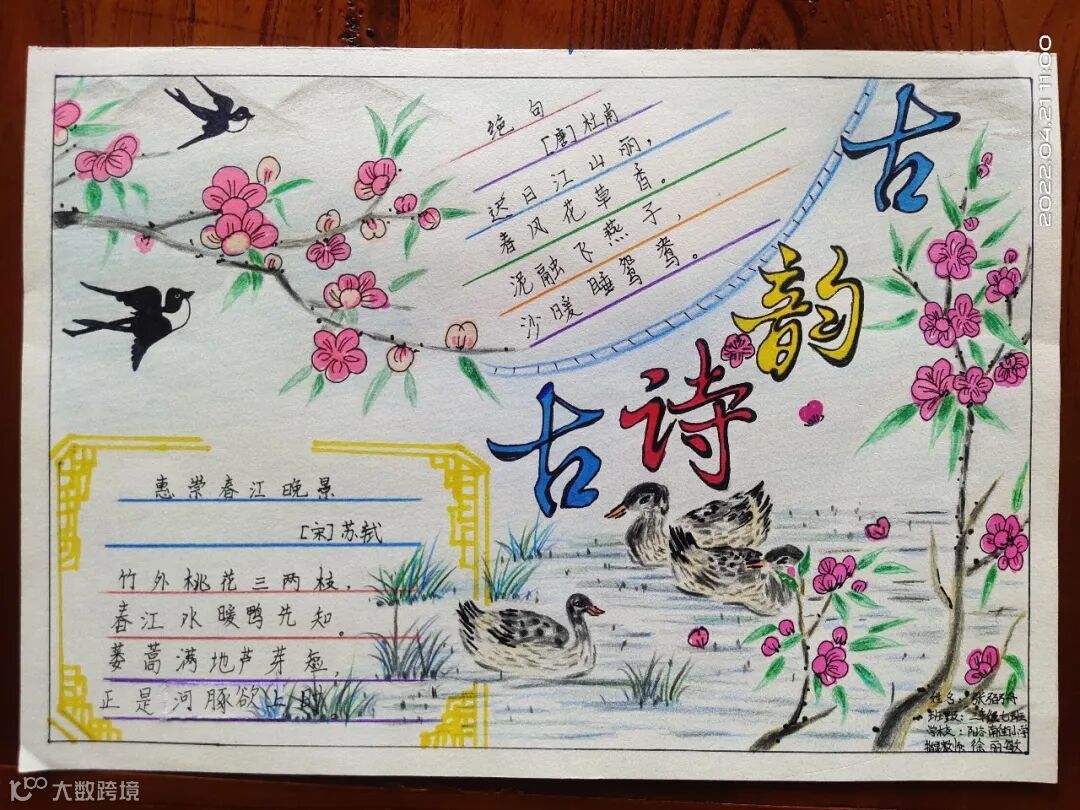 绝句
[唐]杜甫
迟日江山丽，
春风花草香。
泥融飞燕子，
沙暖睡鸳鸯。
古诗韵古
惠崇春江晚景
[宋]苏轼
竹外桃花三两枝，
春江水暖鸭先知。
蒌蒿满地芦芽短，
正是河豚欲上时。
姓名：张
班级：三年级七班
学校：南街小学
徐丽敏
2022.04.21 11:00
大数跨境